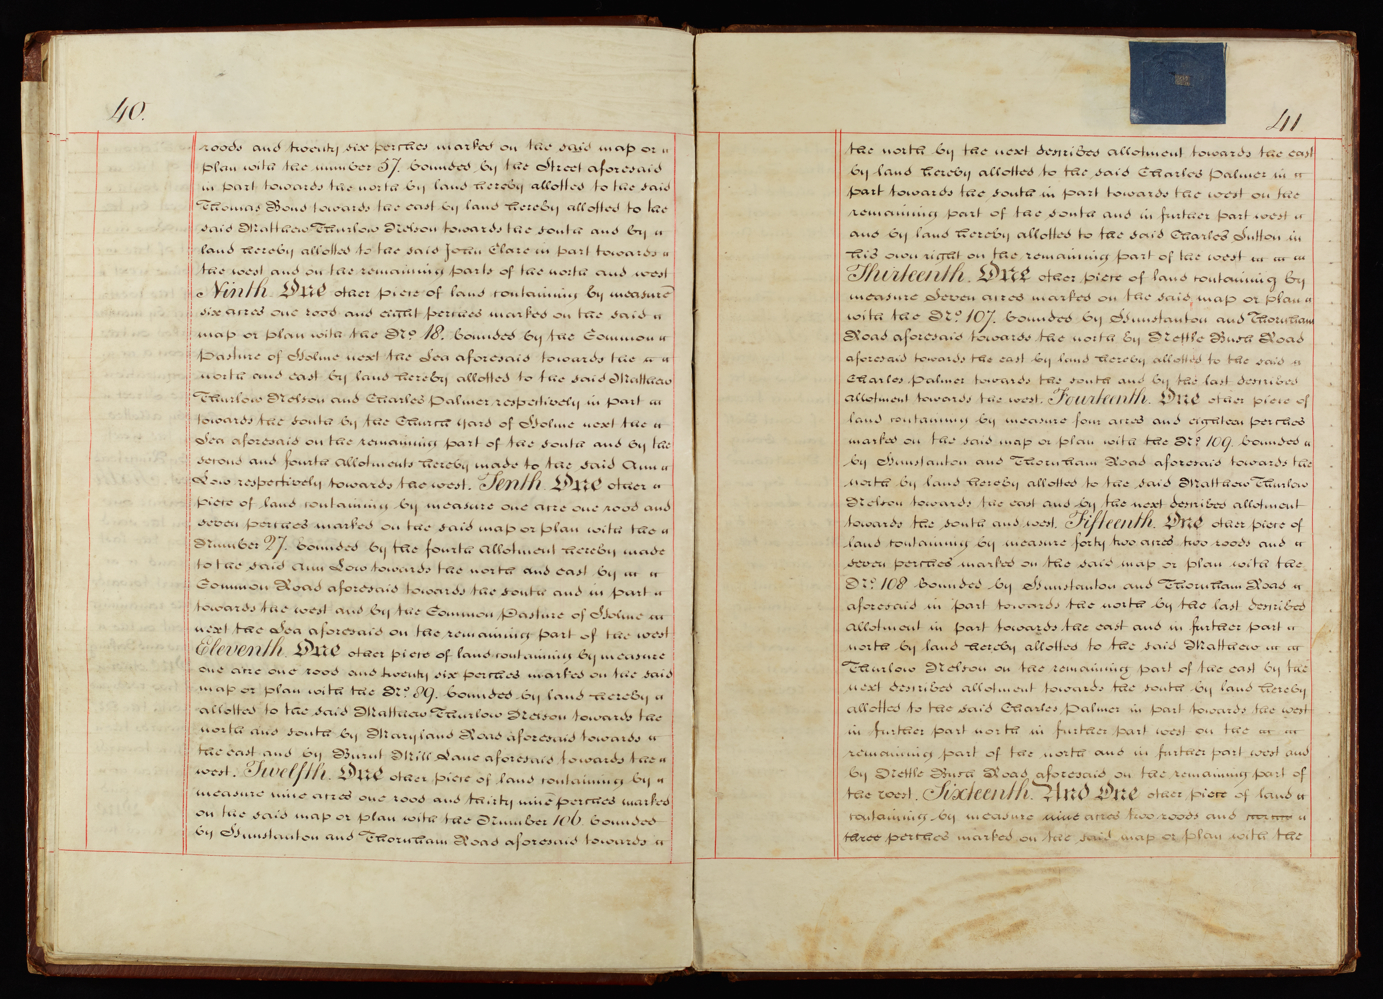 40.
roods and twenty six perches marked on the said map or
plan with the number 37. bounded by the Street aforesaid
in part towards the north by land hereby allotted to the said
Thomas Bond towards the east by land hereby allotted to the
said Matthew Thurlow Nelson towards the south and by
land hereby allotted to the said John Clare in part towards
the west and on the remaining parts of the north and west
Ninth. One other piece of land containing by measure
six acres one rood and eight perches marked on the said
map or plan with the No. 18. bounded by the Common
Pasture of Holme next the Sea aforesaid towards the
north and east by land hereby allotted to the said Matthew
Thurlow Nelson and Charles Palmer respectively in part
towards the south by the Church Yard of Holme next the
Sea aforesaid on the remaining part of the south and by the
second and fourth Allotments hereby made to the said Ann
Low respectively towards the west. Tenth. One other
piece of land containing by measure one acre one rood and
seven perches marked on the said map or plan with the
Number 27. bounded by the fourth Allotment hereby made
to the said Ann Low towards the north and east by
Common Road aforesaid towards the south and in part
towards the west and by the Common Pasture of Holme
next the Sea aforesaid on the remaining part of the west
Eleventh. One other piece of land containing by measure
one acre one rood and twenty six perches marked on the said
map or plan with the No. 89. bounded by land hereby
allotted to the said Matthew Thurlow Nelson towards the
north and south by Maryland Road aforesaid towards
the east and by Burnt Mill Lane aforesaid towards the
west. Twelfth. One other piece of land containing by
measure nine acres one rood and thirty nine perches marked
on the said map or plan with the Number 106 bounded
by Hunstanton and Thornham Road aforesaid towards
41
the north by the next described allotment towards the east
by land hereby allotted to the said Charles Palmer in
part towards the south in part towards the west on the
remaining part of the south and in further part west
and by land hereby allotted to the said Charles Sutton in
his own right on the remaining part of the west
Thirteenth. One other piece of land containing by
measure Seven acres marked on the said map or plan
with the No. 107. bounded by Hunstanton and Thornham
Road aforesaid towards the north by Nettle Bush Road
aforesaid towards the east by land hereby allotted to the said
Charles Palmer towards the south and by the last described
allotment towards the west. Fourteenth. One other piece of
land containing by measure four acres and eighteen perches
marked on the said map or plan with the No. 109. bounded
by Hunstanton and Thornham Road aforesaid towards the
north by land hereby allotted to the said Matthew Thurlow
Nelson towards the east and by the next described allotment
towards the south and west. Fifteenth. One other piece of
land containing by measure forty two acres two roods and
seven perches marked on the said map or plan with the
No. 108 bounded by Hunstanton and Thornham Road
aforesaid in part towards the north by the last described
allotment in part towards the east and in further part
north by land hereby allotted to the said Matthew
Thurlow Nelson on the remaining part of the east by the
next described allotment towards the south by land hereby
allotted to the said Charles Palmer in part towards the west
in further part north in further part west on the
remaining part of the north and in further part west and
by Nettle Bush Road aforesaid on the remaining part of
the west. Sixteenth. And One other piece of land
containing by measure nine acres two roods and
three perches marked on the said map or plan with the